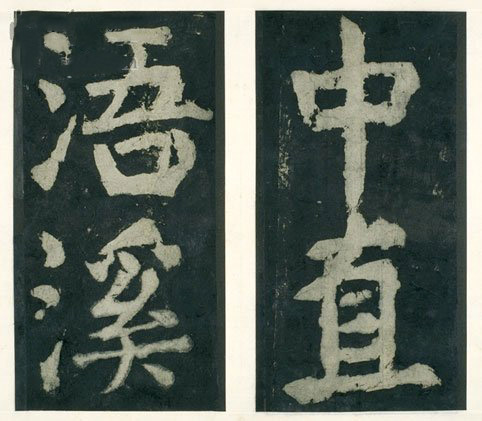 中直
浯溪